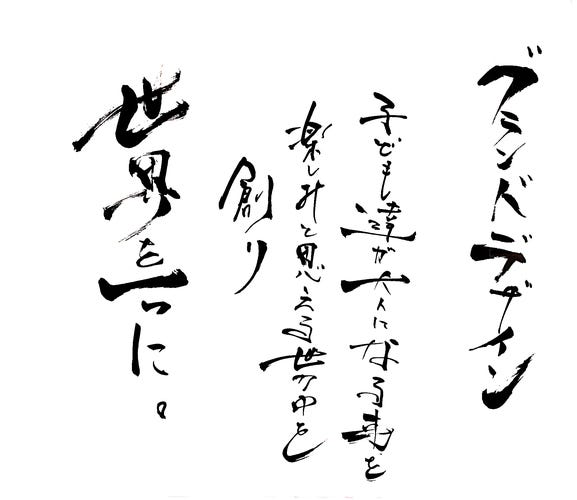 グランドデザイン
子ども達が大人になる事を
楽しみと思える世の中を
創り
世界を一つに。